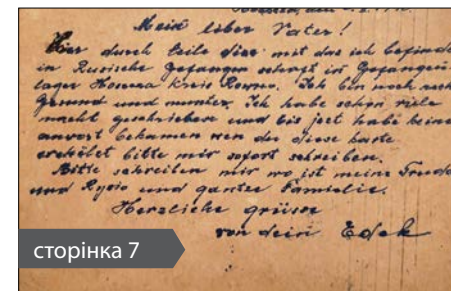 Mein liber Vater!
Hier durch teile dier mit das ich befinde
in Rusische Gefangen schaft in Gefangen
lager Kreis Rowno. Ich bin noch
Gesund und munter. Ich habe schon viele
macht geschrieben und bis jezt habe keine
anvort bekamen wen der diese karte
erhölet bitte mir sofort schreiben.
Bitte schreiben mir wo ist meine
und Rysio und gantze Familie.
Herzliche grüsse
von dein Edek
сторінка 7